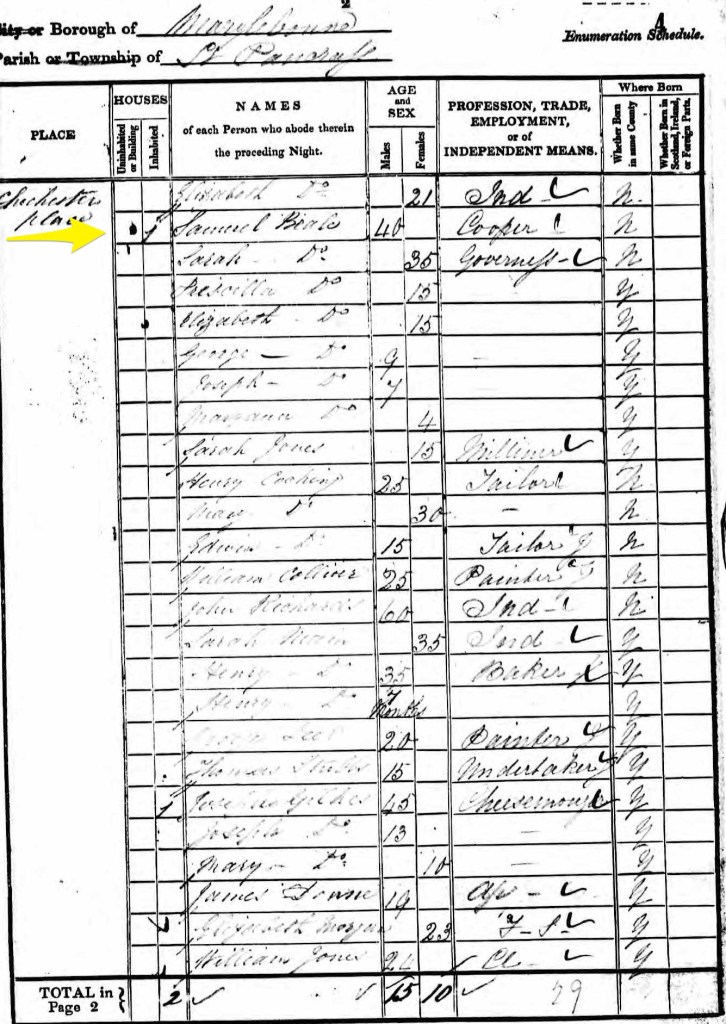 2
4
City or Borough of Marylebone
Enumeration Schedule.
Parish or Township of St Pancrass
PLACE
HOUSES
Uninhabited or Building
Inhabited
NAMES
of each Person who abode therein
the preceding Night.
AGE
and
SEX
Males
Females
PROFESSION, TRADE,
EMPLOYMENT,
or of
INDEPENDENT MEANS.
Where Born
Whether Born in same County
Whether Born in Scotland, Ireland, or Foreign Parts.
Chichester place
Elizabeth Do 21 Ind N
1 Samuel Beale 40 Cooper N
Sarah Do 35 Governess N
Priscilla Do 15 Y
Elizabeth Do 15 Y
George Do 9 – Y
Joseph Do 7 Y
Maryann Do 4 Y
Sarah Jones 15 Milliner Y
Henry Cocking 25 Tailor N
Mary Do 30 – N
Edwin Do 15 Tailor J N
William Colliver 25 Painter J N
John Richards 60 Ind N
Sarah 35 Ind Y
Henry Do 35 Baker Y
Henry Do 7 Months Y
20 Painter Y
Thomas Stubbs 15 Undertaker Y
1 Gilkes 45 Cheesemong Y
Joseph Do 13 – Y
Mary Do 10 – Y
James Downe 19 Ap Y
Elizabeth Morgan 23 F.S. Y
William Jones Cl Y
TOTAL in Page 2 } 2 15 10 29